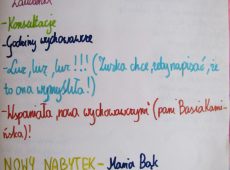 - Konsultacje
- Godziny wychowawcze
- Luz, luz, luz!!! (Zuska chce, żeby napisać, że
to ona wymyśliła!)
- Wspaniała „nowa wychowawczyni" (pani Basia Kami-
ńska)!
NOWY NABYTEK - Mania Bąk